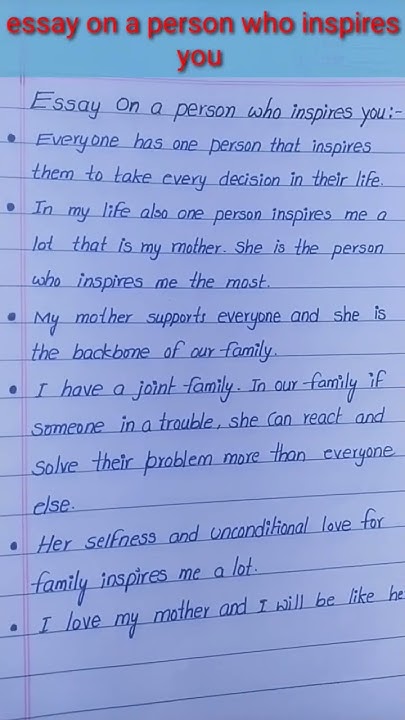 essay on a person who inspires
you
Essay On a person who inspires you:-
• Everyone has one person that inspires
them to take every decision in their life.
• In my life also one person inspires me a
lot that is my mother. She is the person
who inspires me the most.
• My mother supports everyone and she is
the backbone of our family.
• I have a joint family. In our family if
someone in a trouble, she can react and
solve their problem more than everyone
else.
• Her selfness and unconditional love for
family inspires me a lot.
• I love my mother and I will be like he